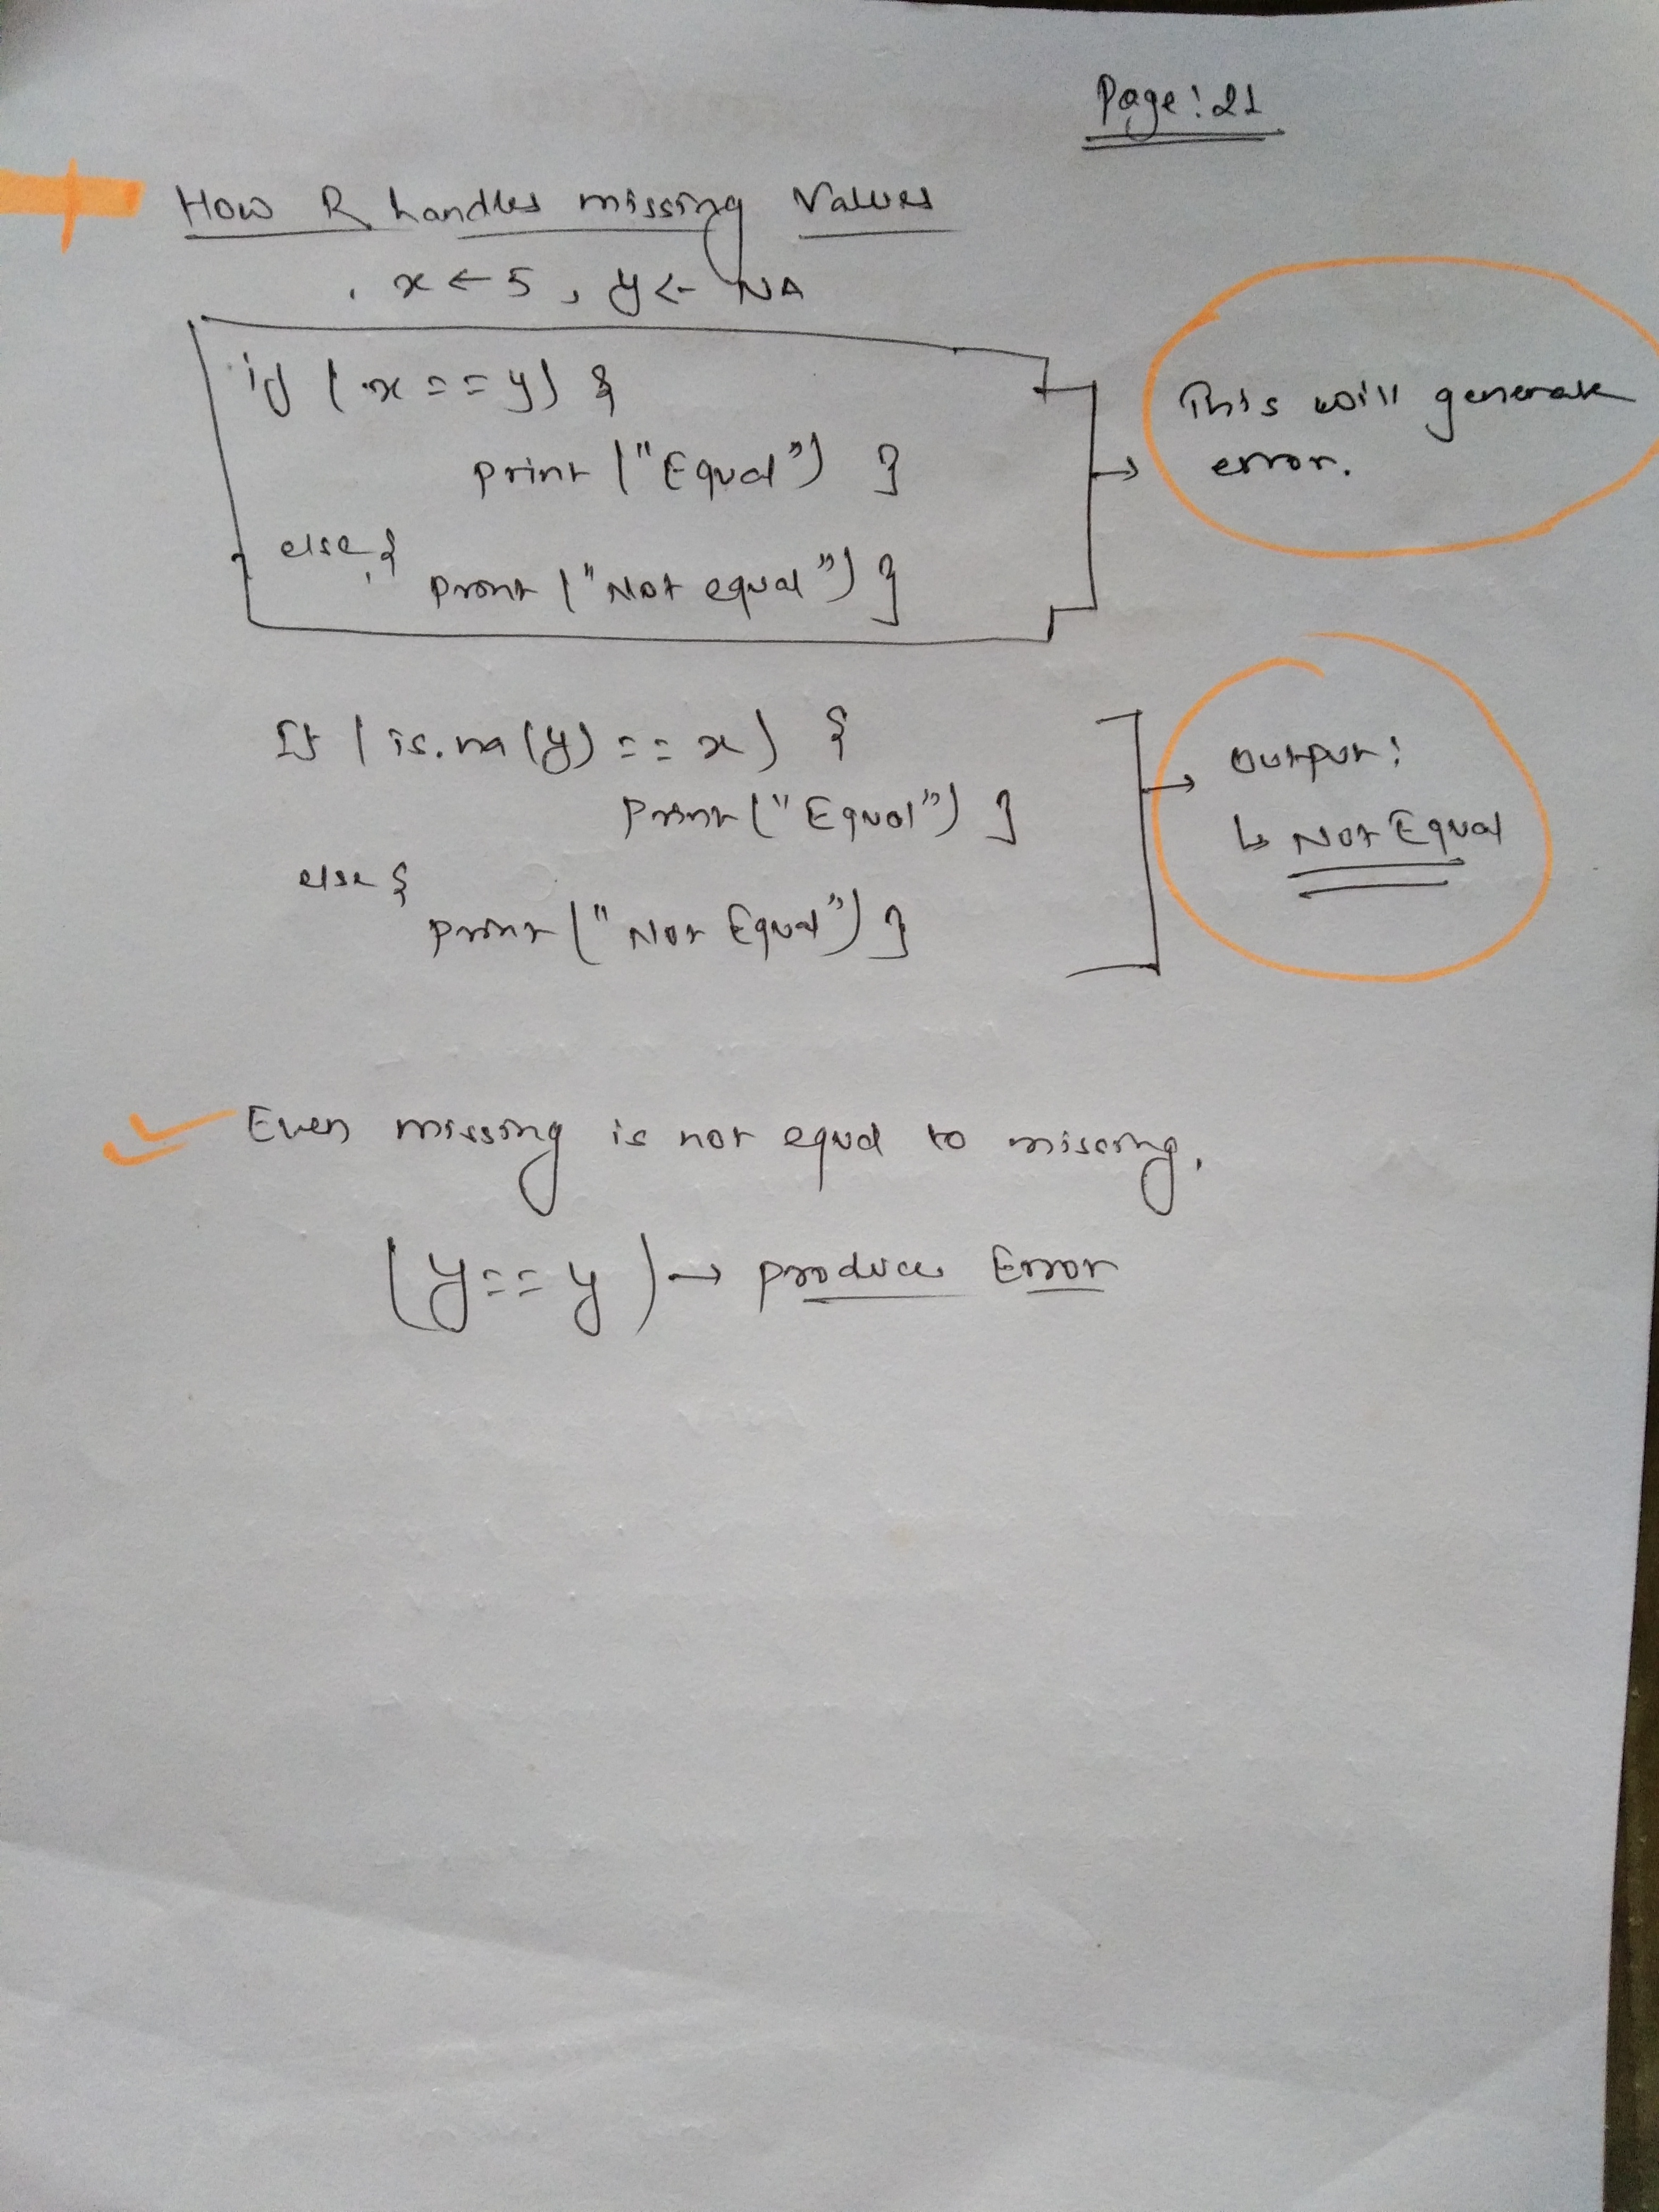 Page: 21
How R handles missing Values
x ← 5, y ← NA
if (x == y) {
print ("Equal") }
else {
print ("Not equal") }
This will generate
error.
If (is.na(y) == x) {
Print ("Equal") }
else {
print ("Not Equal") }
output:
↳ Not Equal
Even missing is not equal to missing.
(y == y) → produces Error